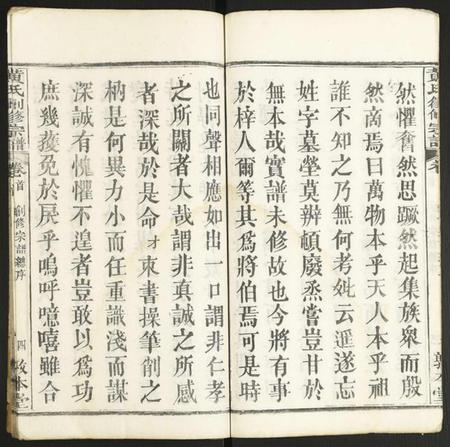 然懼奮然思蹶然起集族衆而殷
然商焉曰萬物本乎天人本乎祖
誰不知之乃無何考妣云徂遂忘
姓字墓塋莫辨頓廢烝嘗豈甘於
無本哉實譜未修故也今將有事
於梓人爾等其爲將伯焉可是時
也同聲相應如出一口謂非仁孝
之所關者大哉謂非真誠之所感
者深哉於是命才束書操筆削之
柄是何異力小而任重識淺而謀
深誠有愧懼不遑者豈敢以爲功
庶幾獲免於戾乎嗚呼噫嘻雖合
黃氏創修宗譜
卷首
創修宗譜總序
四
敦本堂